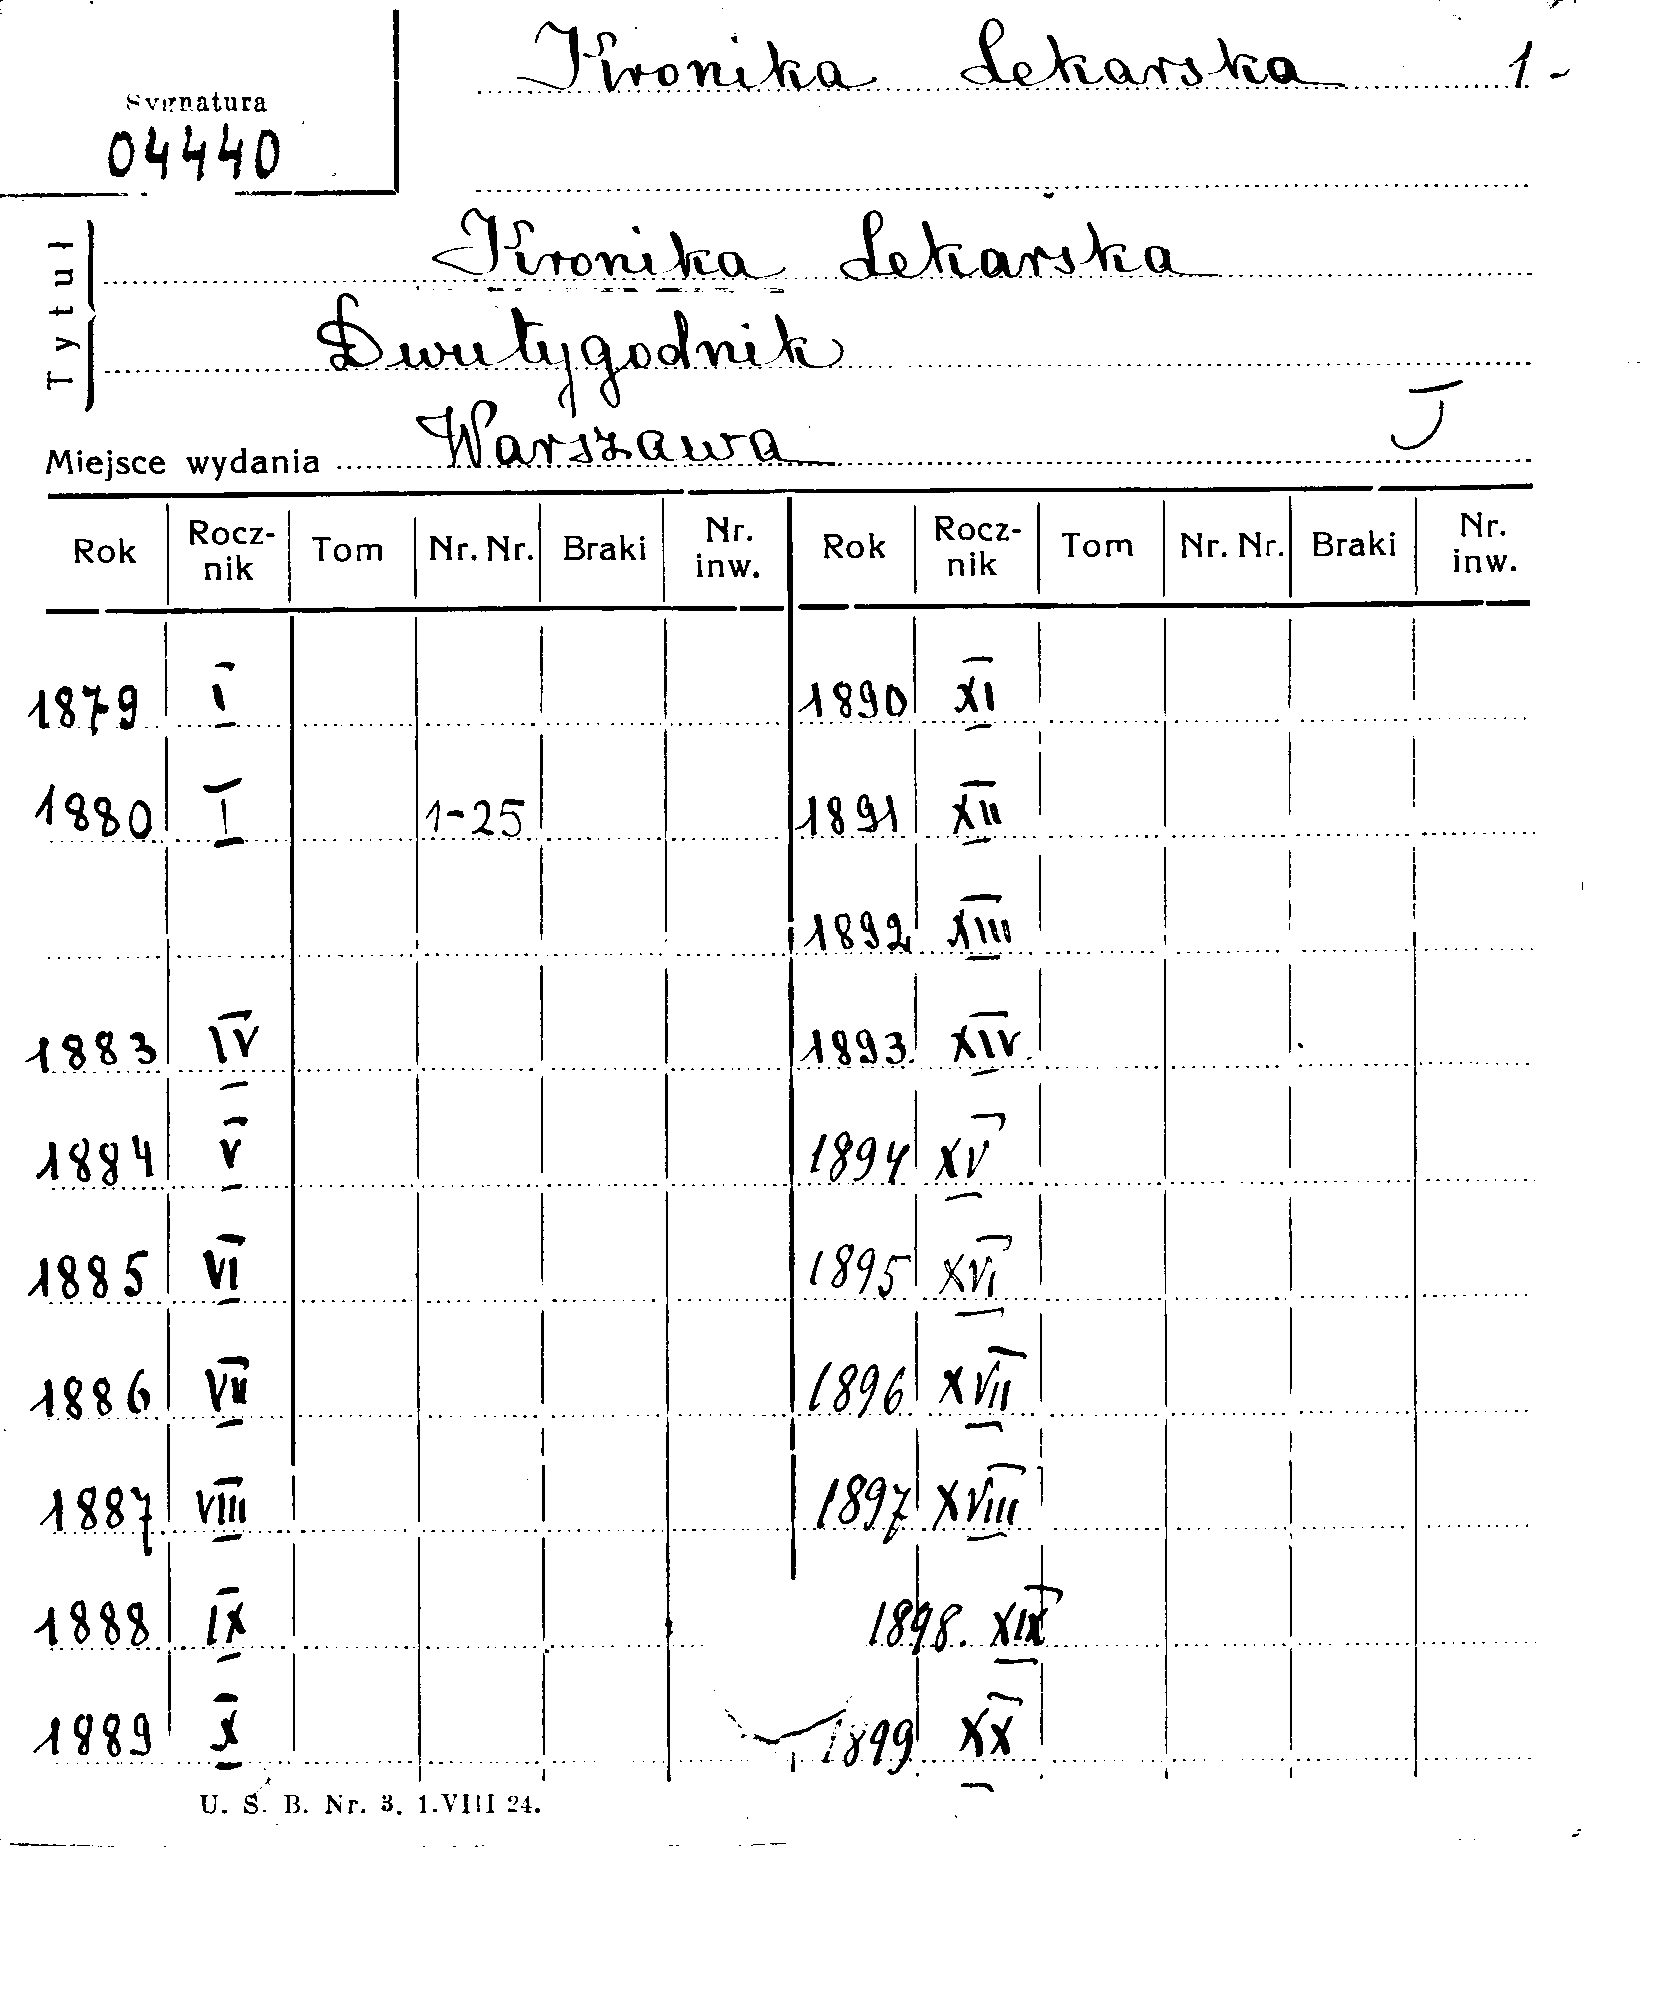 Kronika Lekarska 1-
Sygnatura
04440
Tytuł
Kronika Lekarska
Dwutygodnik
Miejsce wydania Warszawa I
Rok Rocz-nik Tom Nr. Nr. Braki Nr. inw. Rok Rocz-nik Tom Nr. Nr. Braki Nr. inw.
1879 I 1890 XI
1880 I 1-25 1891 XII
1892 XIII
1883 IV 1893 XIV
1884 V 1894 XV
1885 VI 1895 XVI
1886 VII 1896 XVII
1887 VIII 1897 XVIII
1888 IX 1898. XIX
1889 X 1899 XX
U. S. B. Nr. 3. 1.VIII 24.